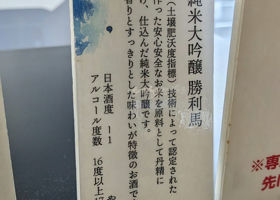 純米大吟醸 勝利馬
(土壌肥沃度指標)技術によって認定された
作った安心安全なお米を原料として丹精に
り、仕込んだ純米大吟醸です。
香りとすっきりとした味わいが特徴のお酒で
日本酒度 -1
アルコール度数 16度以上17
※専
先